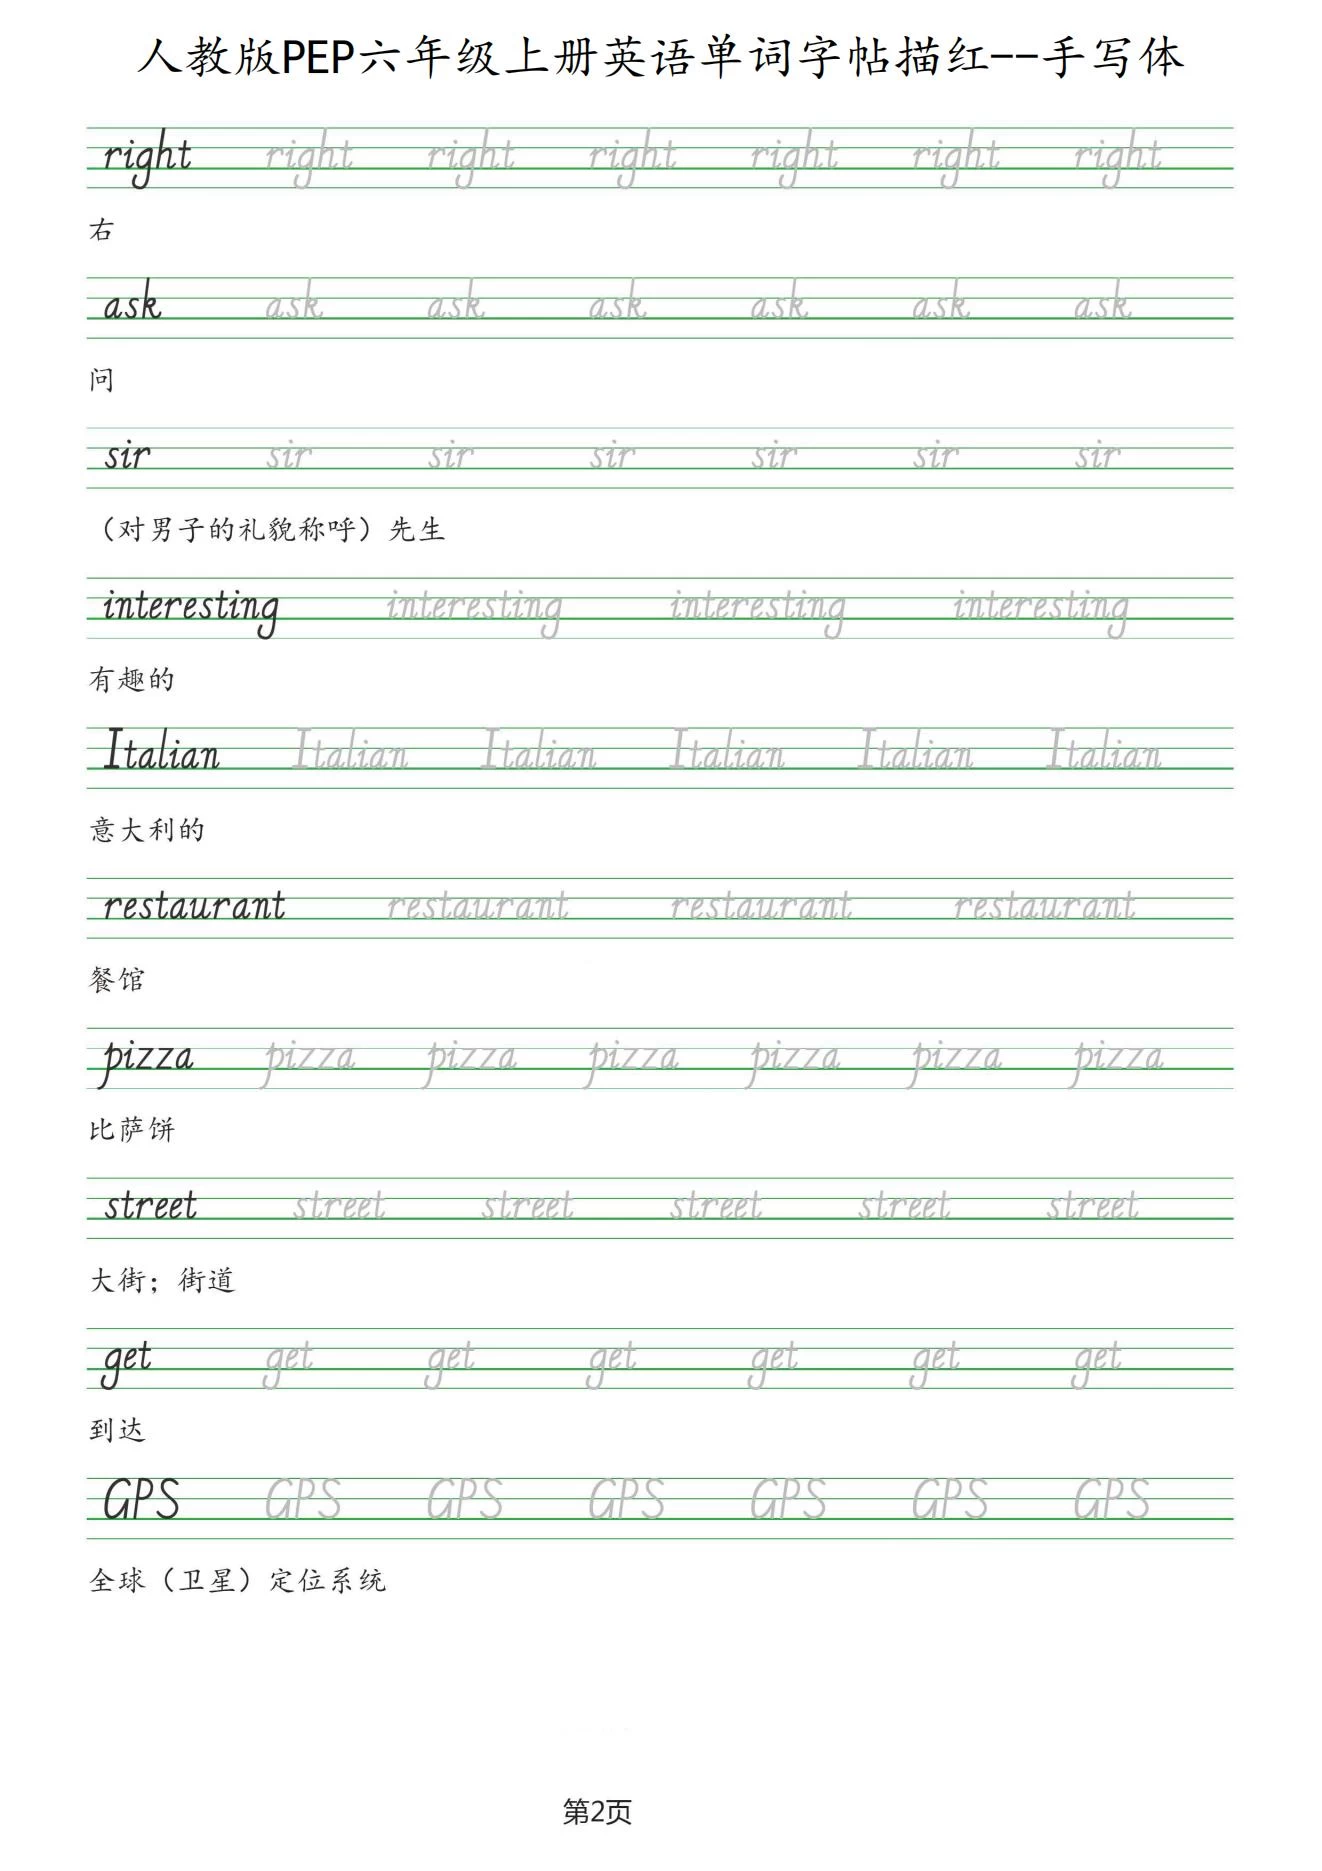 人教版PEP六年级上册英语单词字帖描红--手写体
right right right right right right right
右
ask ask ask ask ask ask ask
问
sir sir sir sir sir sir sir
（对男子的礼貌称呼）先生
interesting interesting interesting interesting
有趣的
Italian Italian Italian Italian Italian Italian
意大利的
restaurant restaurant restaurant restaurant
餐馆
pizza pizza pizza pizza pizza pizza pizza
比萨饼
street street street street street street
大街；街道
get get get get get get get
到达
GPS GPS GPS GPS GPS GPS GPS
全球（卫星）定位系统
第2页